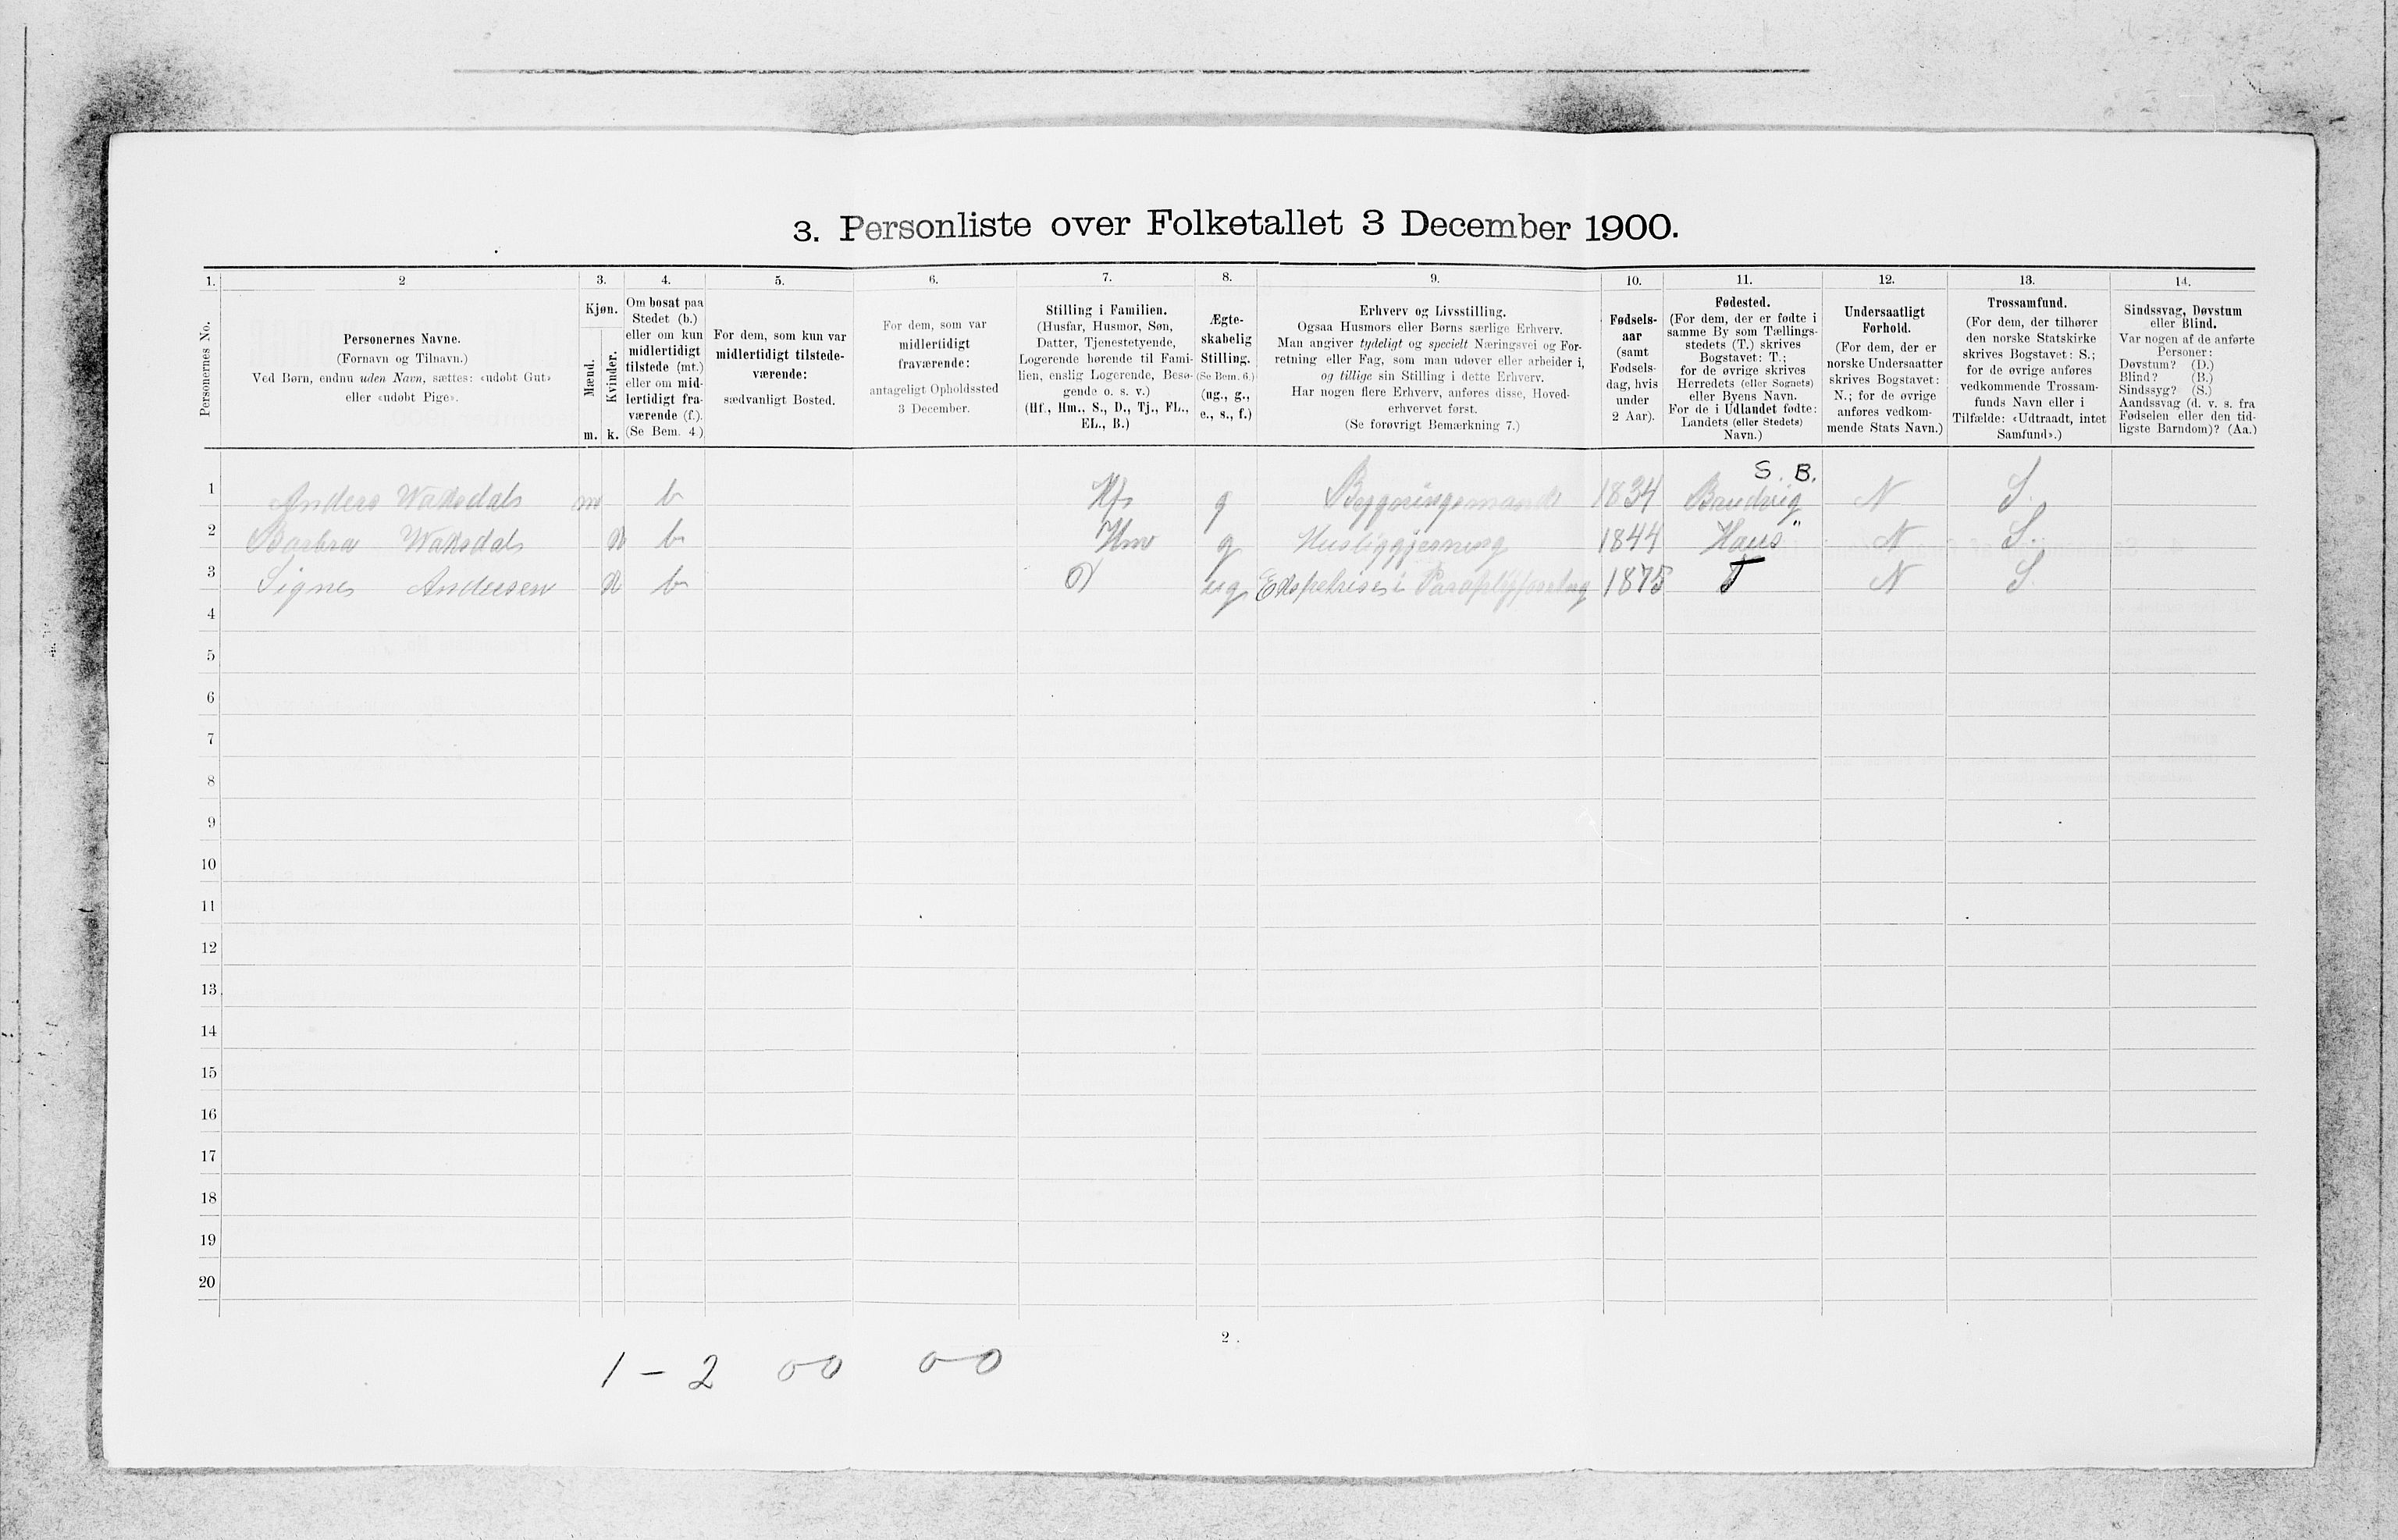 3. Personliste over Folketallet 3 December 1900.
1. 2 3. 4. 5. 6. 7. 8. 9. 10. 11. 12. 13. 14.
Personernes No.
Personernes Navne.
(Fornavn og Tilnavn.)
Ved Børn, endnu uden Navn, sættes: «udøbt Gut»
eller «udøbt Pige».
Kjøn.
Mænd.
Kvinder.
m. k.
Om bosat paa
Stedet (b.)
eller om kun
midlertidigt
tilstede (mt.)
eller om mid-
lertidigt fra-
værende (f.).
(See Bem. 4.)
For dem, som kun var
midlertidigt tilstede-
værende:
sædvanligt Bosted.
For dem, som var
midlertidigt
fraværende:
antageligt Opholdssted
3 December.
Stilling i Familien.
(Husfar, Husmor, Søn,
Datter, Tjenestetyende,
Logerende hørende til Fami-
lien, enslig Logerende, Besø-
gende o. s. v.)
(Hf., Hm., S., D., Tj., FL.,
EL., B.)
Ægte-
skabelig
Stilling.
(Se Bem. 6.)
(ug., g.,
e., s., f.)
Erhverv og Livsstilling.
Ogsaa Husmors eller Børns særlige Erhverv.
Man angiver tydeligt og specielt Næringsvei og For-
retning eller Fag, som man udøver eller arbeider i,
og tillige sin Stilling i dette Erhverv.
Har nogen flere Erhverv, anføres disse, Hoved-
erhvervet først.
(Se forøvrigt Bemærkning 7.)
Fødsels-
aar
(samt
Fødsels-
dag, hvis
under
2 Aar).
Fødested.
(For dem, der er fødte i
samme By som Tællings-
stedets (T.) skrives
Bogstavet: T.;
for de øvrige skrives
Herredets (eller Sognets)
eller Byens Navn.
For de i Udlandet fødte:
Landets (eller Stedets)
Navn.)
Undersaatligt
Forhold.
(For dem, der er
norske Undersaatter
skrives Bogstavet:
N.; for de øvrige
anføres vedkom-
mende Stats Navn.)
Trossamfund.
(For dem, der tilhører
den norske Statskirke
skrives Bogstavet: S.;
for de øvrige anføres
vedkommende Trossam-
funds Navn eller i
Tilfælde: «Udtraadt, intet
Samfund».)
Sindssvag, Døvstum
eller Blind.
Var nogen af de anførte
Personer:
Døvstum? (D.)
Blind? (B.)
Sindssyg? (S.)
Aandssvag (d. v. s. fra
Fødselen eller den tid-
ligste Barndom)? (Aa.)
S. B.
1 Anders Waksdal m b Hf g Bygningsmand 1834 Bruvig N S.
2 Barbra Waksdal k b Hm g Husliggjerning 1844 Haus " N S.
3 Signe Andersen k b D ug 1875 T N S.
4
5
6
7
8
9
10
11
12
13
14
15
16
17
18
19
20
2
1 - 2 00 00